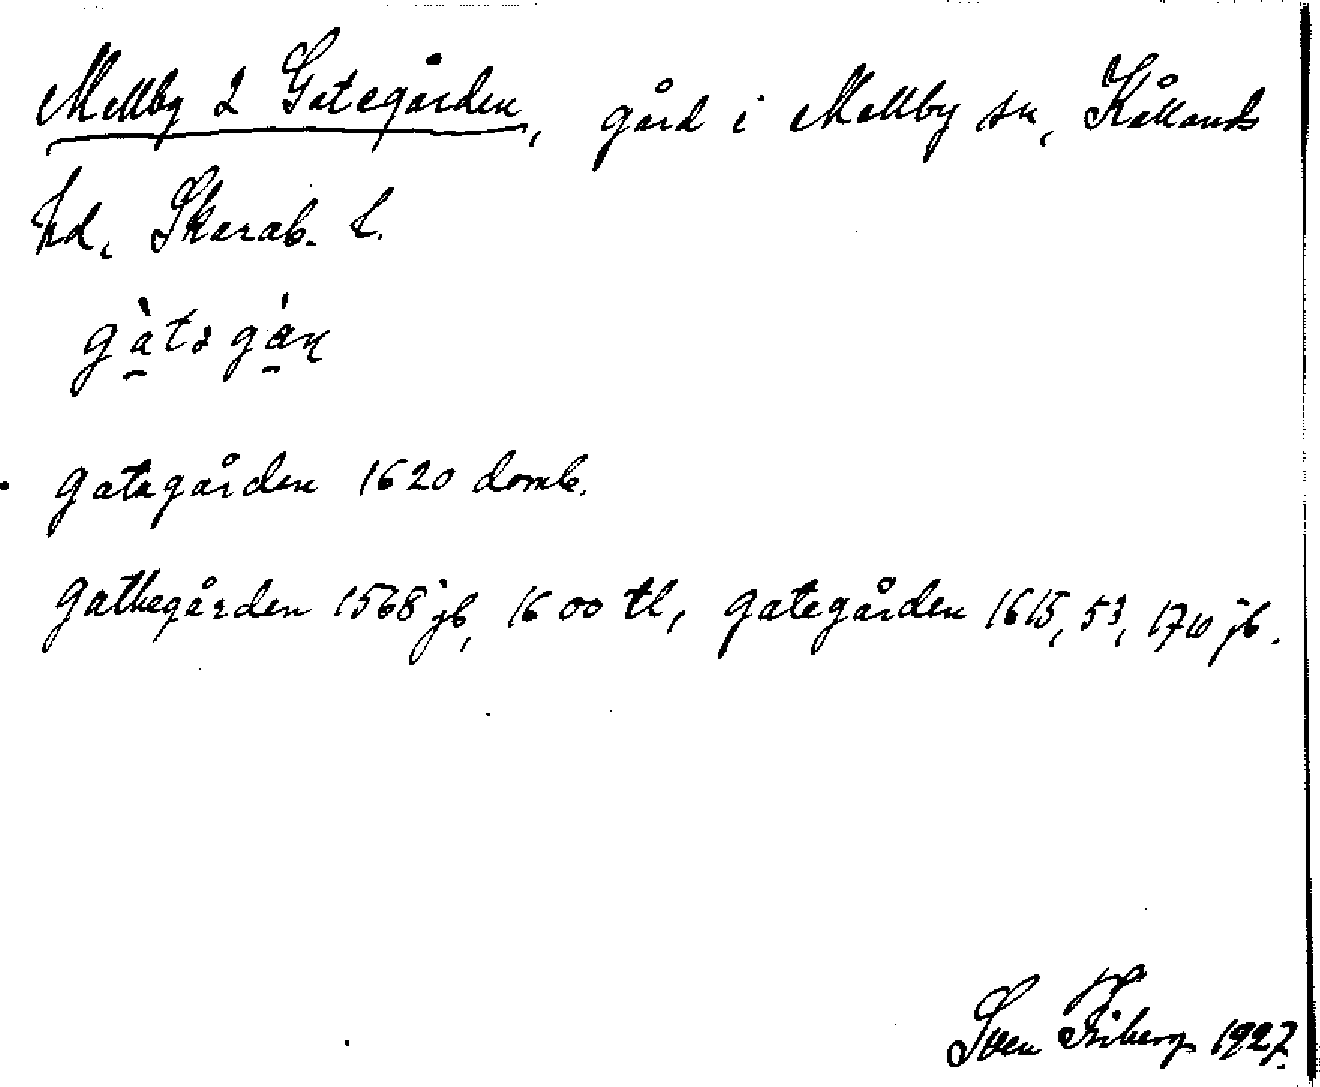 Mellby 2 Gategården, gård i Mellby sn, Kållands
hd, Skarab. l.
gàtə gán
gatagården 1620 domb.
gathegården 1568 jb, 1600 tl, gategården 1615, 53, 1710 jb.
Sven Friberg 1927.